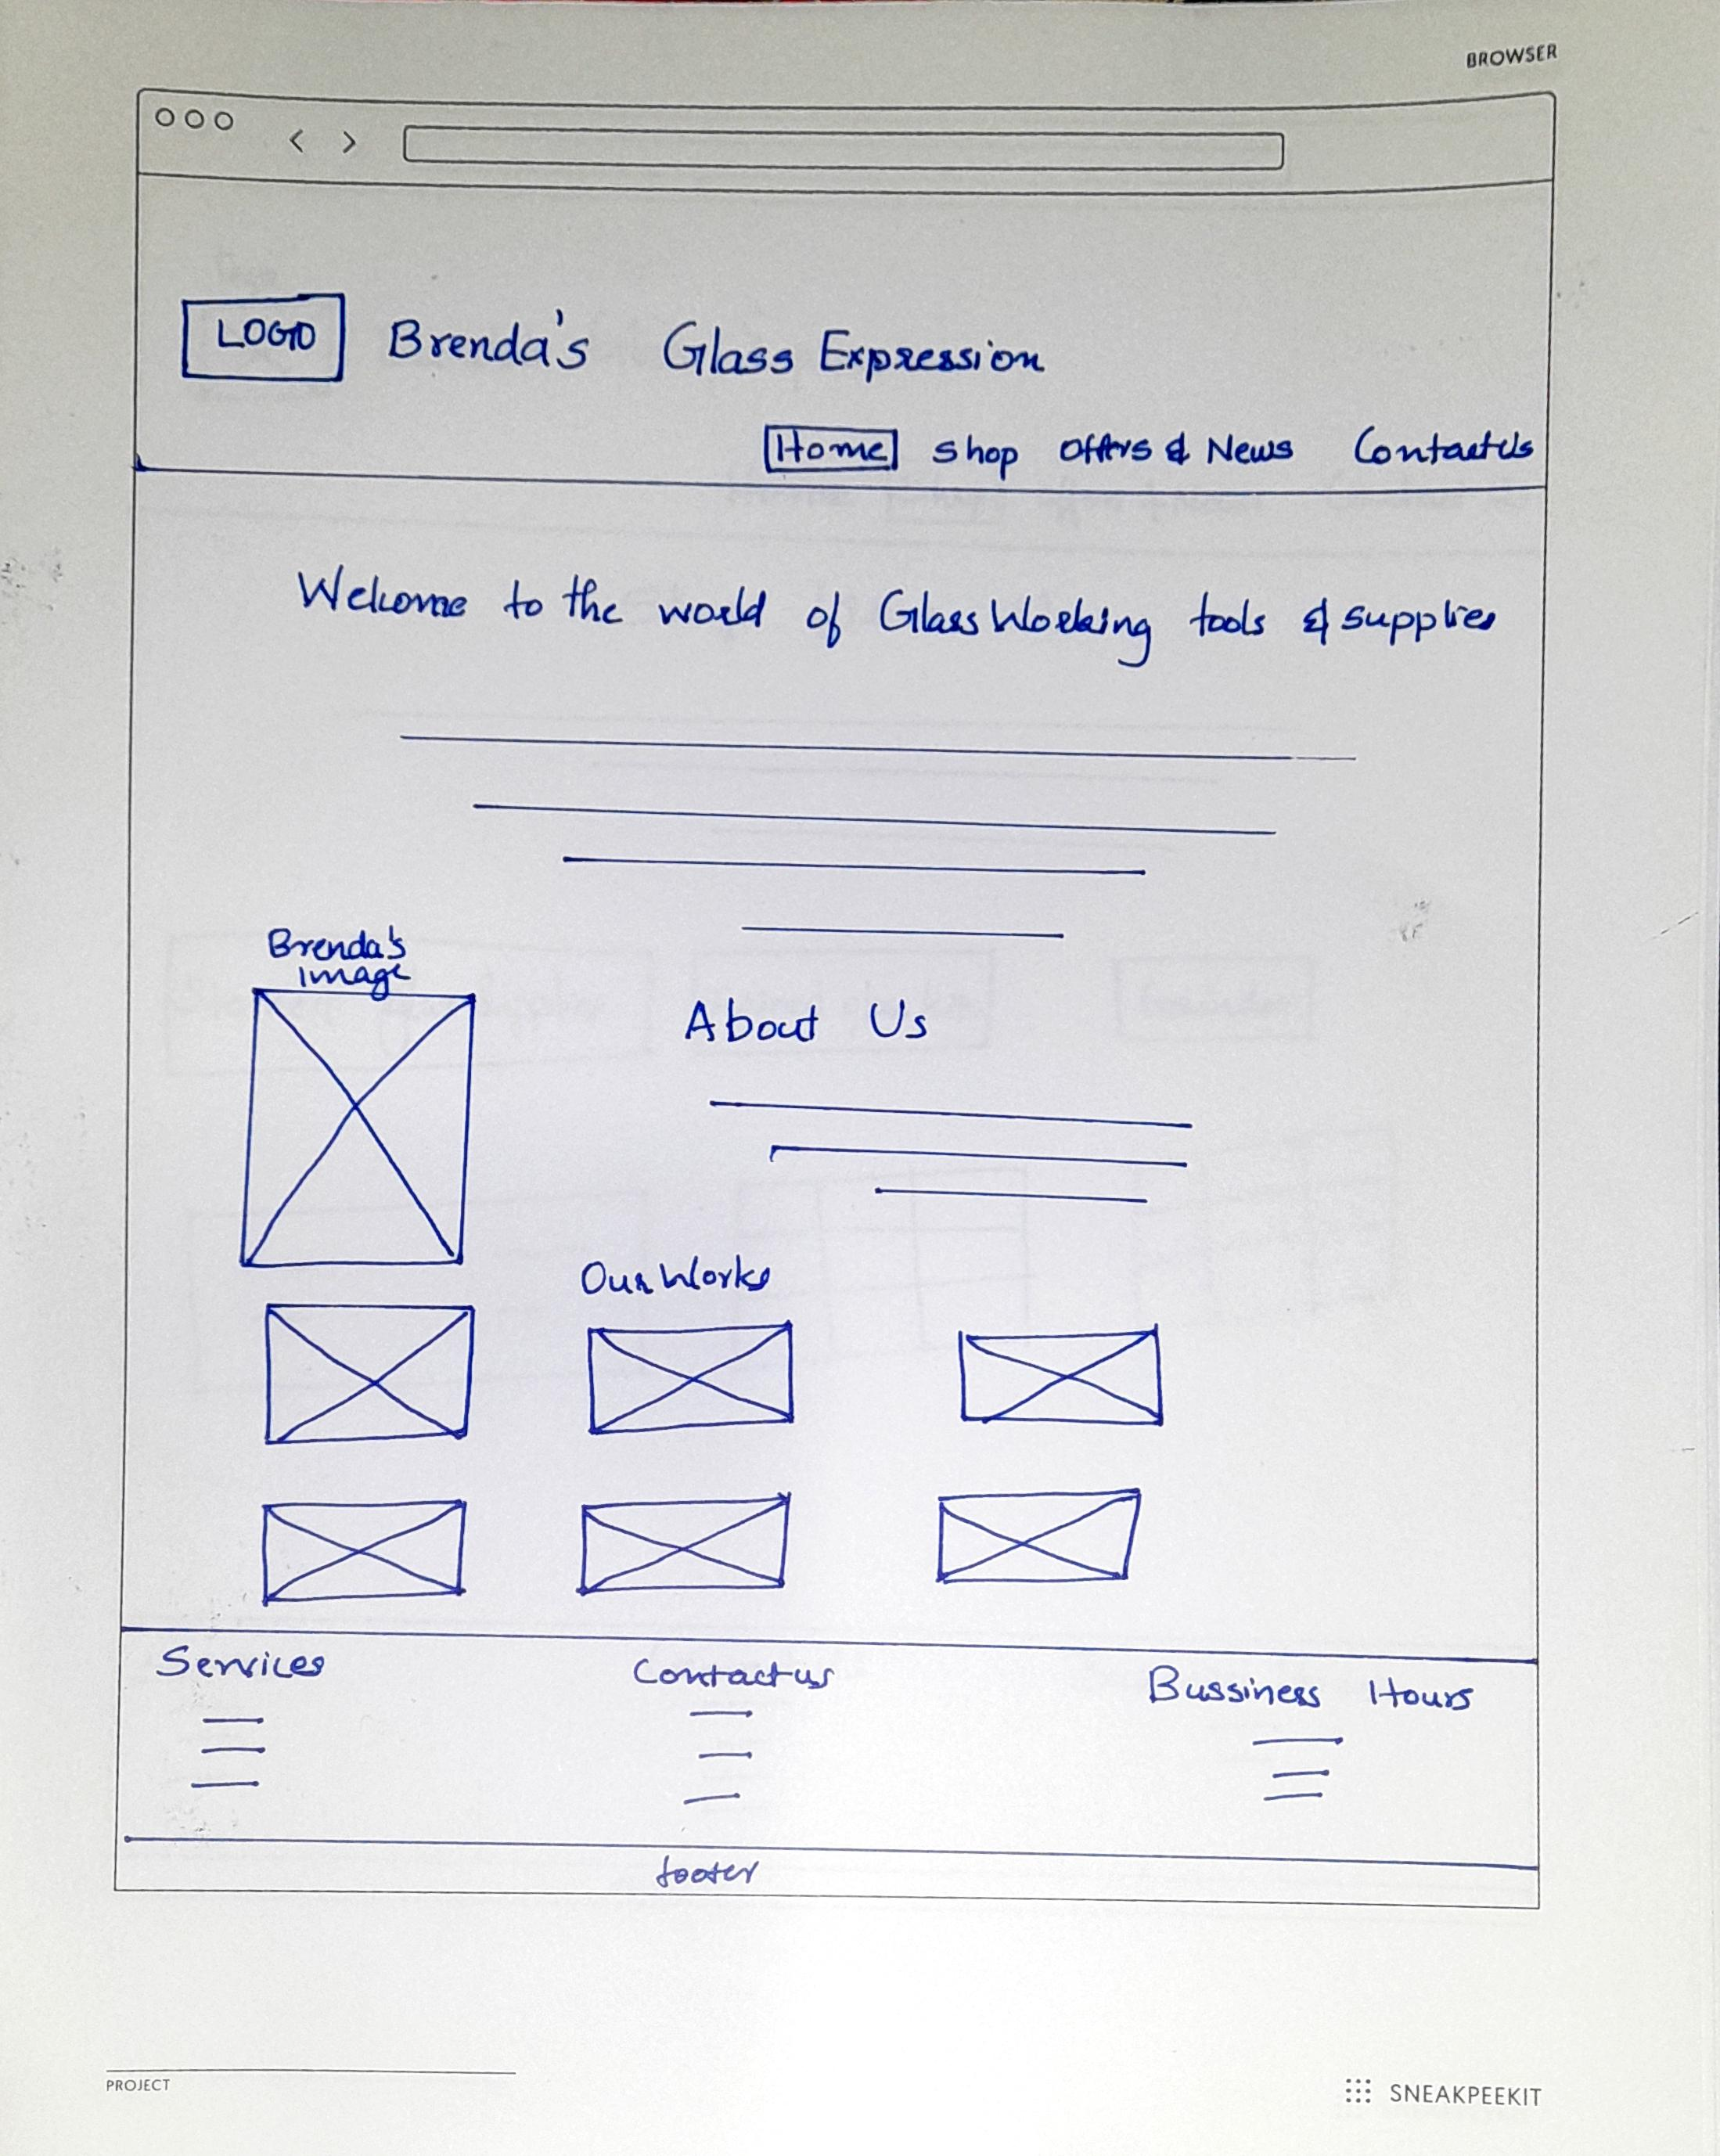 BROWSER
LOGO Brenda's Glass Expression
Home Shop Offers & News Contact Us
Welcome to the world of Glass Working tools & supplies
Brenda's
Image
About Us
Our Works
Services Contact us Bussiness Hours
footer
PROJECT
SNEAKPEEKIT